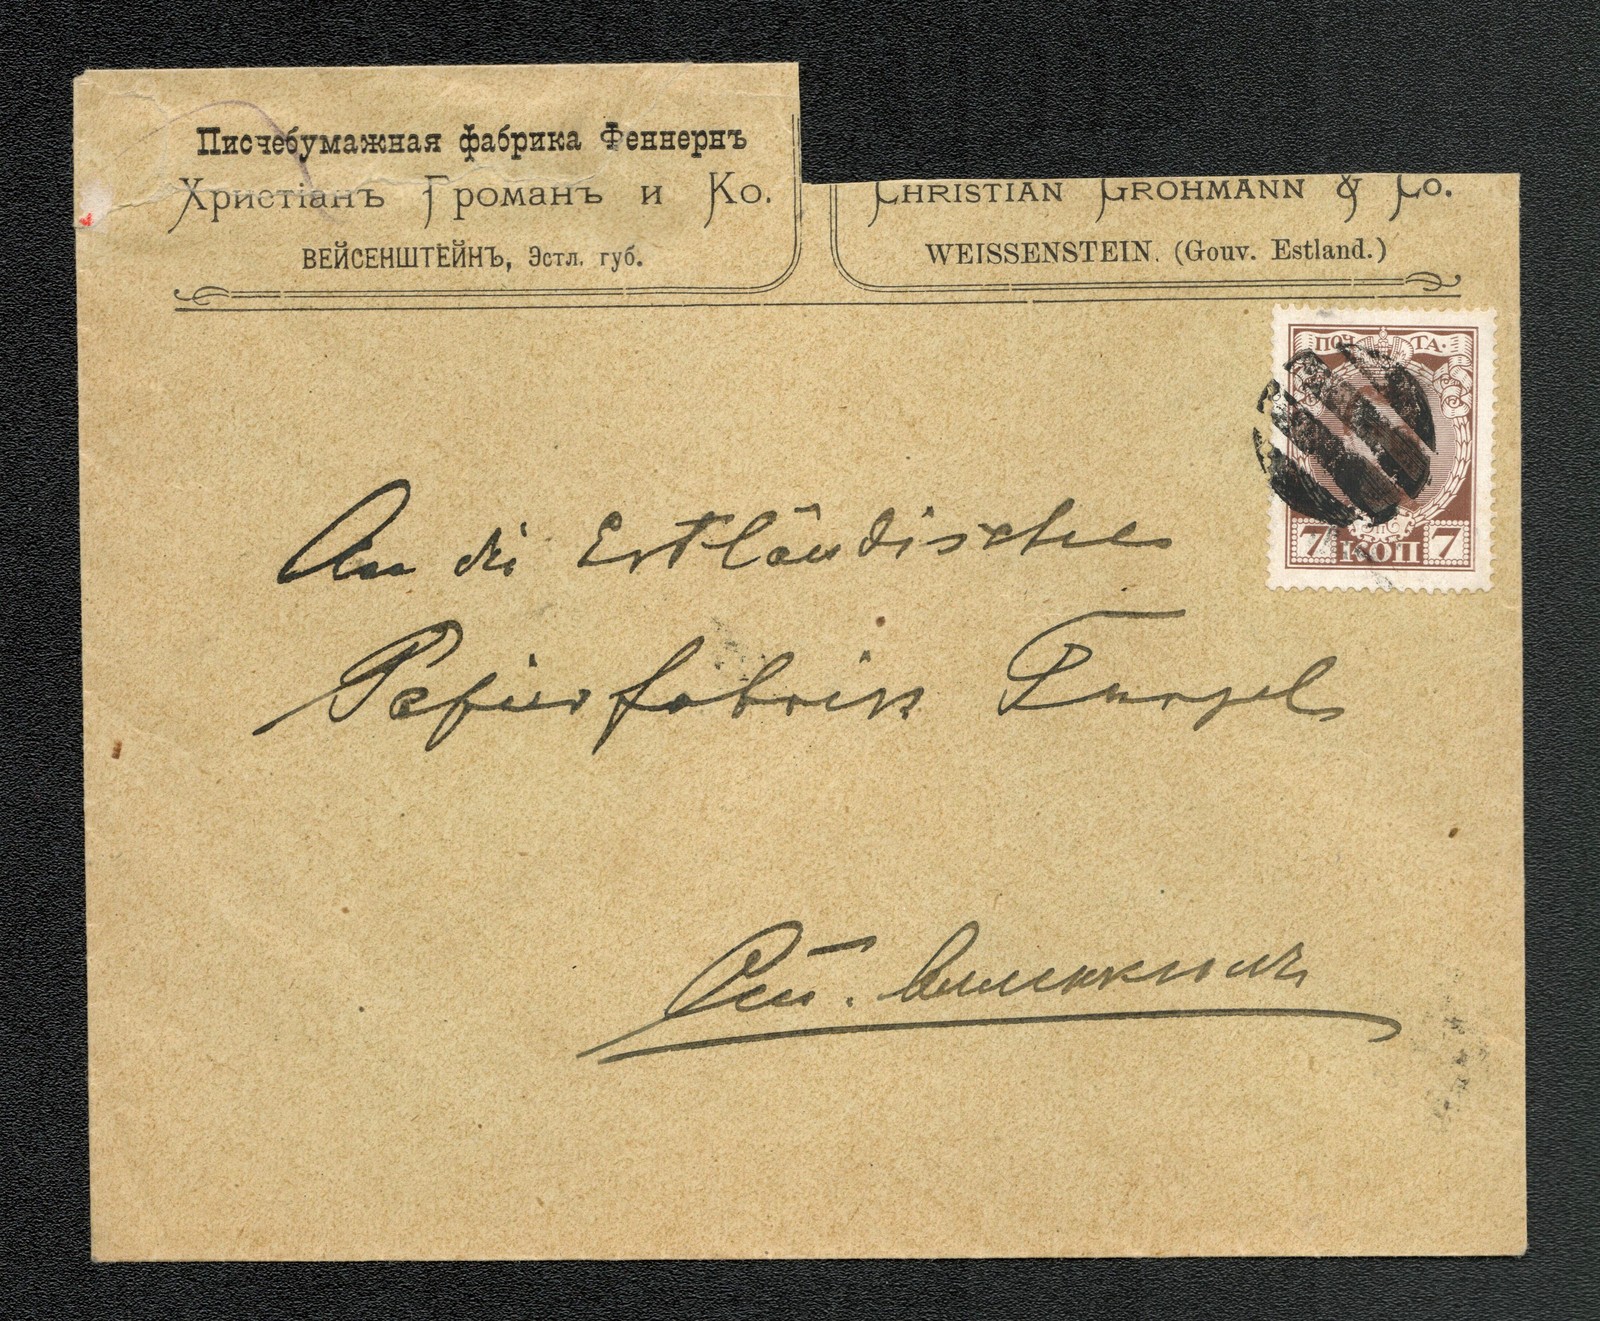 Писчебумажная фабрика Феннернъ
Христіанъ Громанъ и Ко.
ВЕЙСЕНШТЕЙНЪ, Эстл. губ.
CHRISTIAN GROHMANN & Co.
WEISSENSTEIN. (Gouv. Estland.)
ПОЧТА.
7 КОП 7
An die Estländische
Papierfabrik Turgel
Ст.